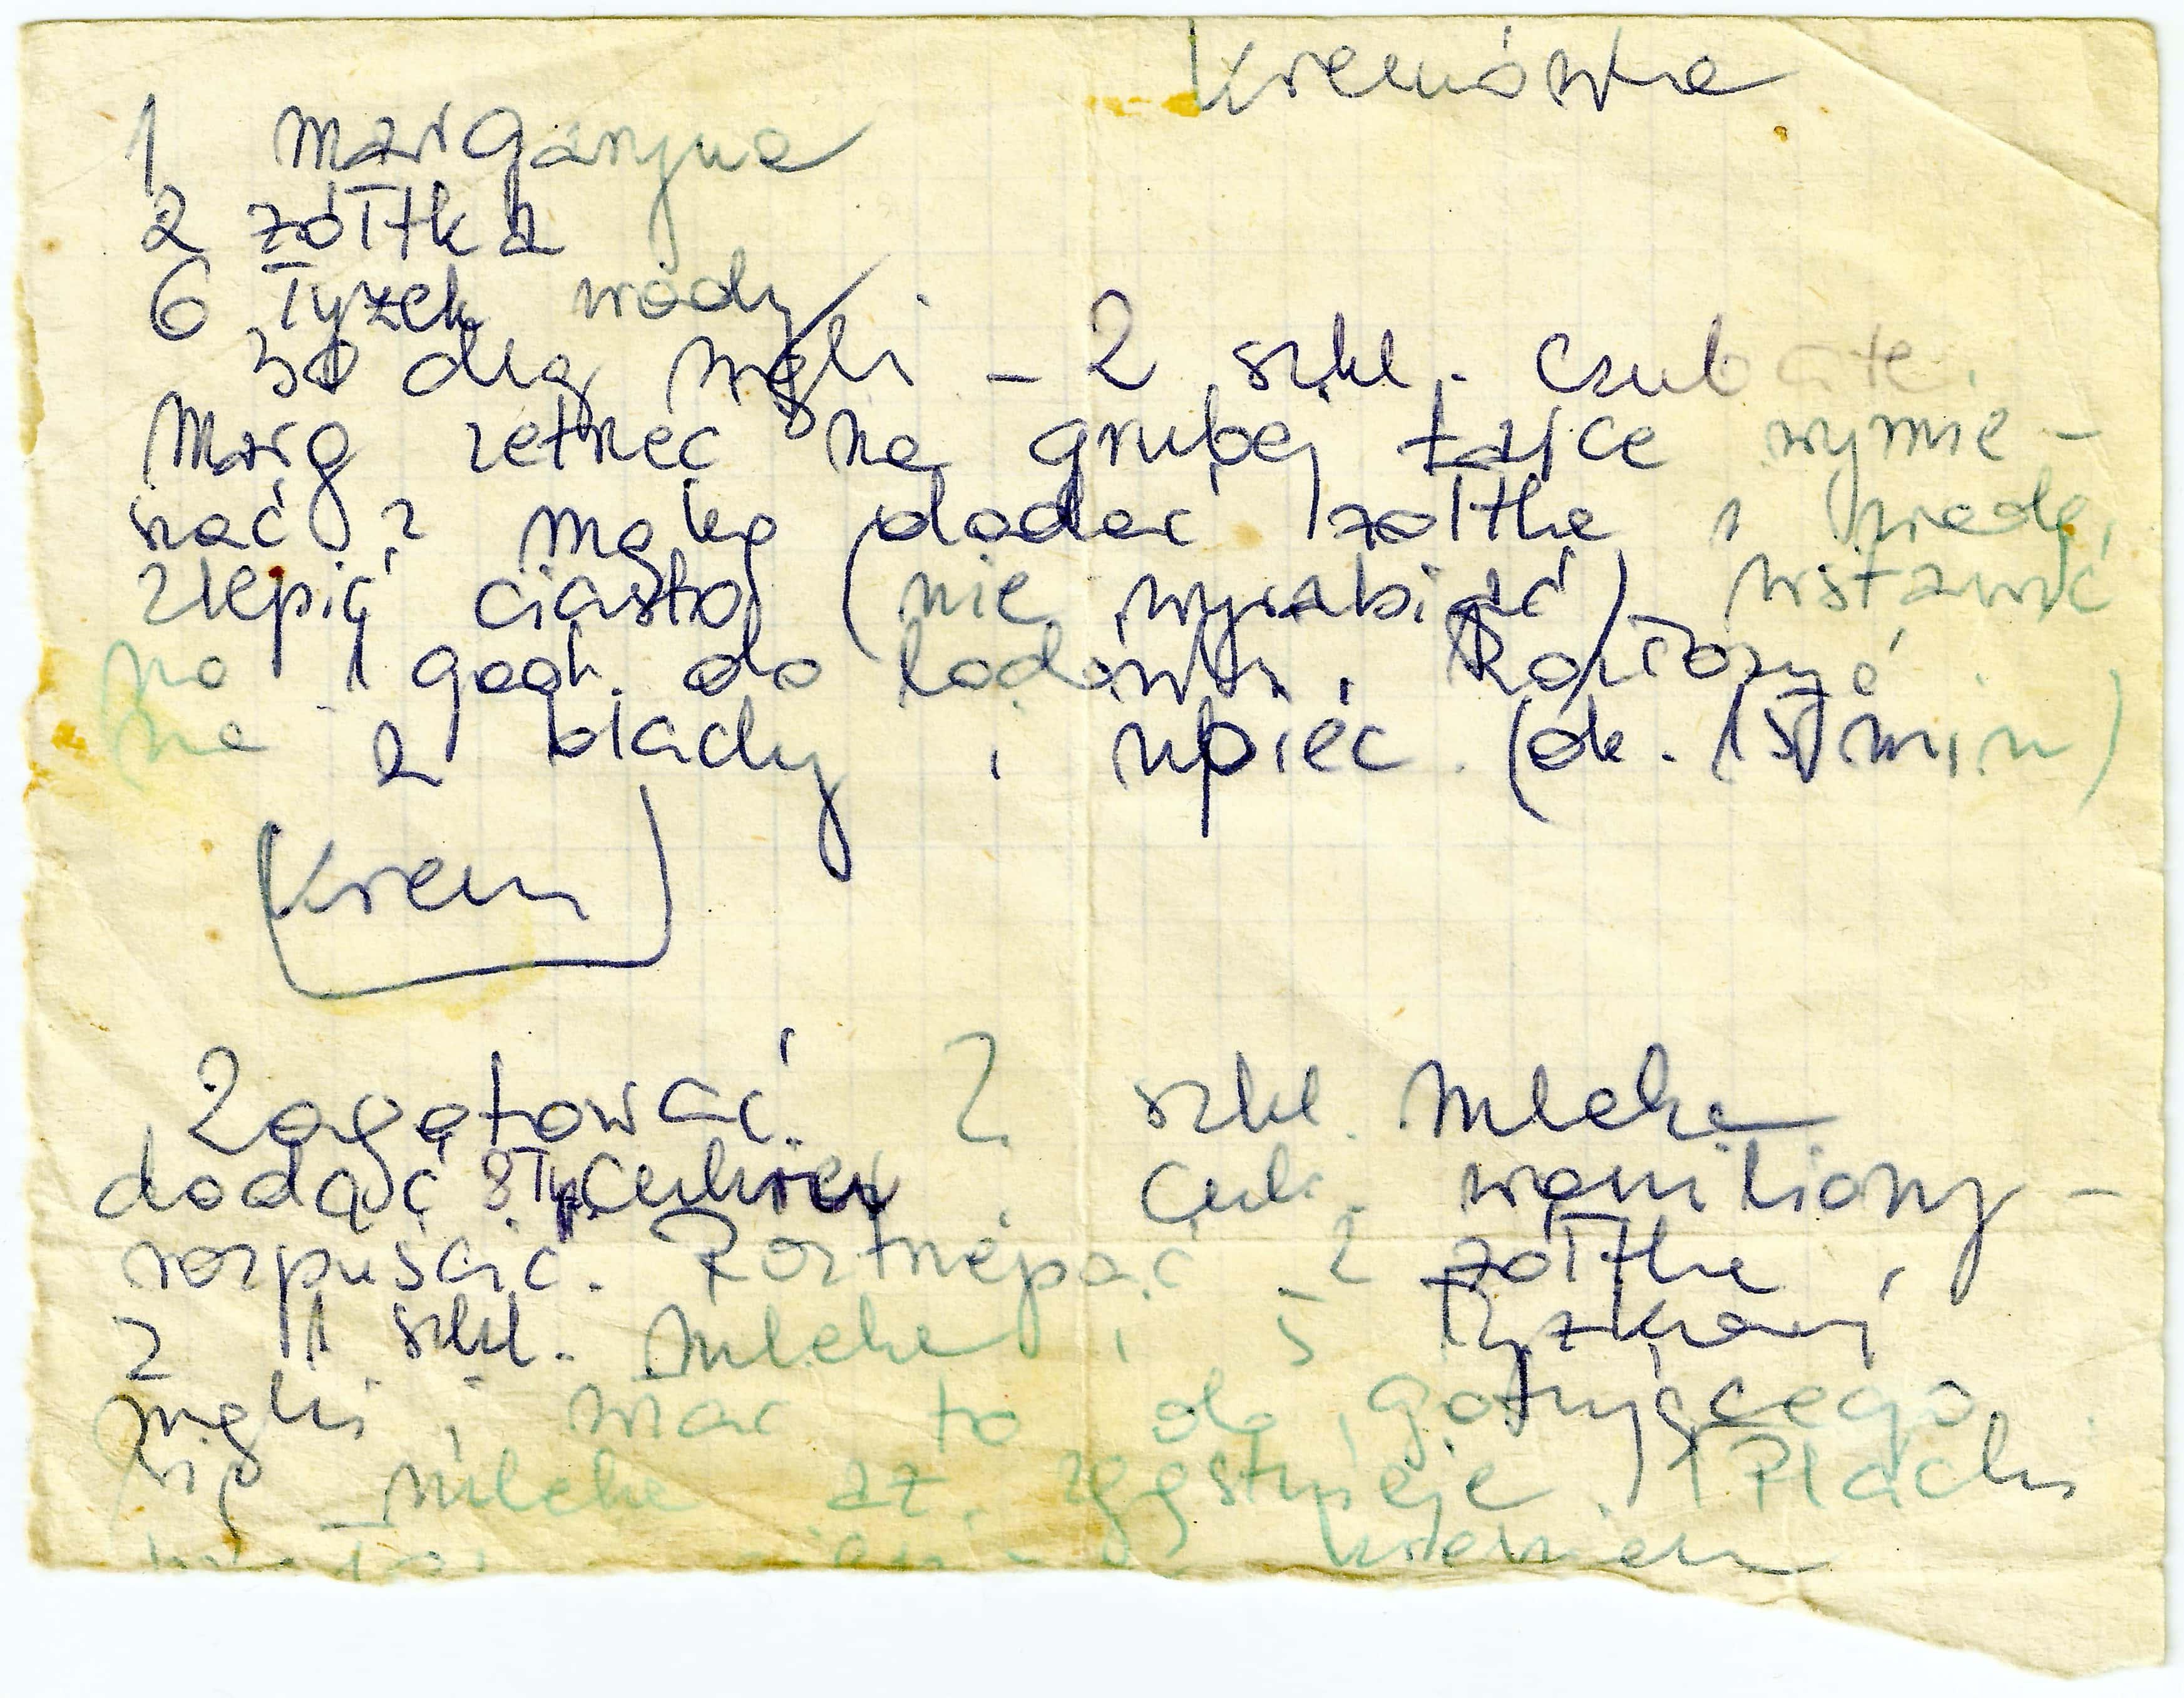 Kremówka
1 margaryna
2 żółtka
6 łyżek wody
30 dkg mąki - 2 szkl. czubate.
Marg zetrzeć na grubej tarce wymie-
szać z mąką dodać żółtka i wodę,
zlepić ciasto (nie wyrabiać) - wstawić
na 1 godz. do lodówki. Rozłożyć
na 2 blachy i upiec. (ok. 15 min)
Krem
Zagotować 2 szkl. mleka
dodać 8 łyż cukier, cuk. waniliowy -
rozpuścić. Roztrzepać 2 żółtka
z 1 szkl. mleka i 5 łyżkami
mąki i wlać to do gotującego
się mleka aż zgęstnieje. Placki
kremem